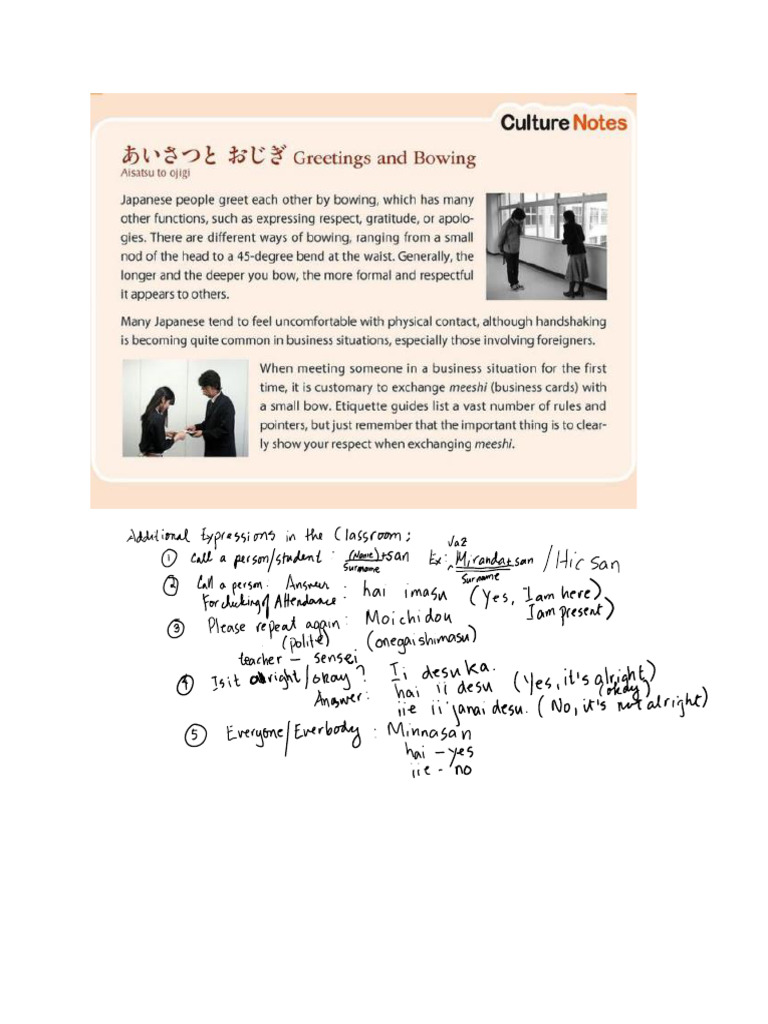 Culture Notes
あいさつと おじぎ Greetings and Bowing
Aisatsu to ojigi
Japanese people greet each other by bowing, which has many
other functions, such as expressing respect, gratitude, or apolo-
gies. There are different ways of bowing, ranging from a small
nod of the head to a 45-degree bend at the waist. Generally, the
longer and the deeper you bow, the more formal and respectful
it appears to others.
Many Japanese tend to feel uncomfortable with physical contact, although handshaking
is becoming quite common in business situations, especially those involving foreigners.
When meeting someone in a business situation for the first
time, it is customary to exchange meeshi (business cards) with
a small bow. Etiquette guides list a vast number of rules and
pointers, but just remember that the important thing is to clear-
ly show your respect when exchanging meeshi.
Additional Expressions in the Classroom:
① Call a person/student: (Name)+san Ex: Miranda+san / Hic San
Surname Surname
② Call a person: Answer : hai imasu (Yes, I am here)
For checking of Attendance: I am present)
③ Please repeat again: Moichidou
(polite) (onegaishimasu)
teacher – sensei
④ Is it alright/okay? Ii desuka.
Answer: hai ii desu (Yes, it's alright)
(okay)
iie ii janai desu. (No, it's not alright)
⑤ Everyone/Everbody: Minnasan
hai – yes
iie - no